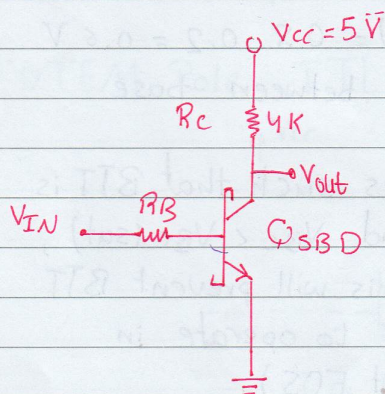 VCC = 5V
RC 4K
Vout
RB
VIN
QSBD